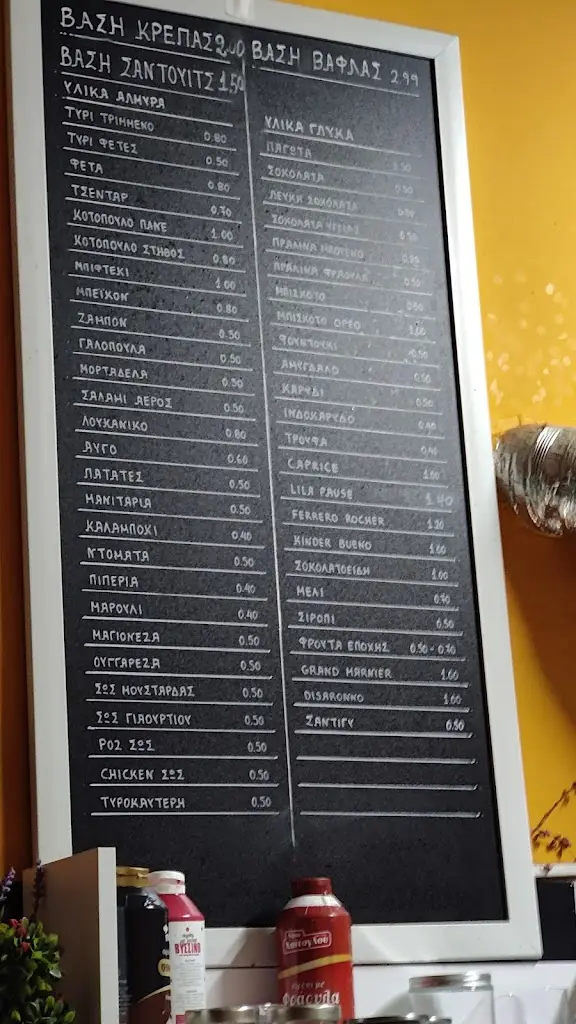 ΒΑΣΗ ΚΡΕΠΑΣ 2,00
ΒΑΣΗ ΣΑΝΤΟΥΙΤΣ 1.50
ΥΛΙΚΑ ΑΛΜΥΡΑ
ΤΥΡΙ ΤΡΙΜΜΕΝΟ 0.80
ΤΥΡΙ ΦΕΤΕΣ 0.50
ΦΕΤΑ 0.80
ΤΣΕΝΤΑΡ 0.70
ΚΟΤΟΠΟΥΛΟ ΠΑΝΕ 1.00
ΚΟΤΟΠΟΥΛΟ ΣΤΗΘΟΣ 0.80
ΜΠΙΦΤΕΚΙ 1.00
ΜΠΕΪΚΟΝ 0.80
ΖΑΜΠΟΝ 0.50
ΓΑΛΟΠΟΥΛΑ 0.50
ΜΟΡΤΑΔΕΛΑ 0.50
ΣΑΛΑΜΙ ΑΕΡΟΣ 0.50
ΛΟΥΚΑΝΙΚΟ 0.80
ΑΥΓΟ 0.60
ΠΑΤΑΤΕΣ 0.50
ΜΑΝΙΤΑΡΙΑ 0.50
ΚΑΛΑΜΠΟΚΙ 0,40
ΝΤΟΜΑΤΑ 0.50
ΠΙΠΕΡΙΑ 0.40
ΜΑΡΟΥΛΙ 0,40
ΜΑΓΙΟΝΕΖΑ 0.50
ΟΥΓΓΑΡΕΖΑ 0.50
ΣΩΣ ΜΟΥΣΤΑΡΔΑΣ 0.50
ΣΩΣ ΓΙΑΟΥΡΤΙΟΥ 0.50
ΡΟΖ ΣΩΣ 0.50
CHICKEN ΣΩΣ 0.50
ΤΥΡΟΚΑΥΤΕΡΗ 0.50
ΒΑΣΗ ΒΑΦΛΑΣ 2.99
ΥΛΙΚΑ ΓΛΥΚΑ
ΠΑΓΩΤΑ
ΣΟΚΟΛΑΤΑ
ΛΕΥΚΗ ΣΟΚΟΛΑΤΑ
ΣΟΚΟΛΑΤΑ ΥΓΕΙΑΣ
ΠΡΑΛΙΝΑ
ΠΡΑΛΙΝΑ ΦΡΑΟΥΛΑ
ΜΠΙΣΚΟΤΟ
ΜΠΙΣΚΟΤΟ ΟΡΕΟ
ΦΟΥΝΤΟΥΚΙ 0.50
ΑΜΥΓΔΑΛΟ 0.50
ΚΑΡΥΔΙ 0.50
ΙΝΔΟΚΑΡΥΔΟ 0.40
ΤΡΟΥΦΑ 0.40
CAPRICE 1.00
LILA PAUSE 1.40
FERRERO ROCHER 1.20
KINDER BUENO 1.00
ΣΟΚΟΛΑΤΟΕΙΔΗ 1.00
ΜΕΛΙ 0.70
ΣΙΡΟΠΙ 0.50
ΦΡΟΥΤΑ ΕΠΟΧΗΣ 0.50-0.70
GRAND MARNIER 1.00
DISARONNO 1.00
ΣΑΝΤΙΓΥ 0.50
ΒΥΣΣΙΝΟ
Φράουλα